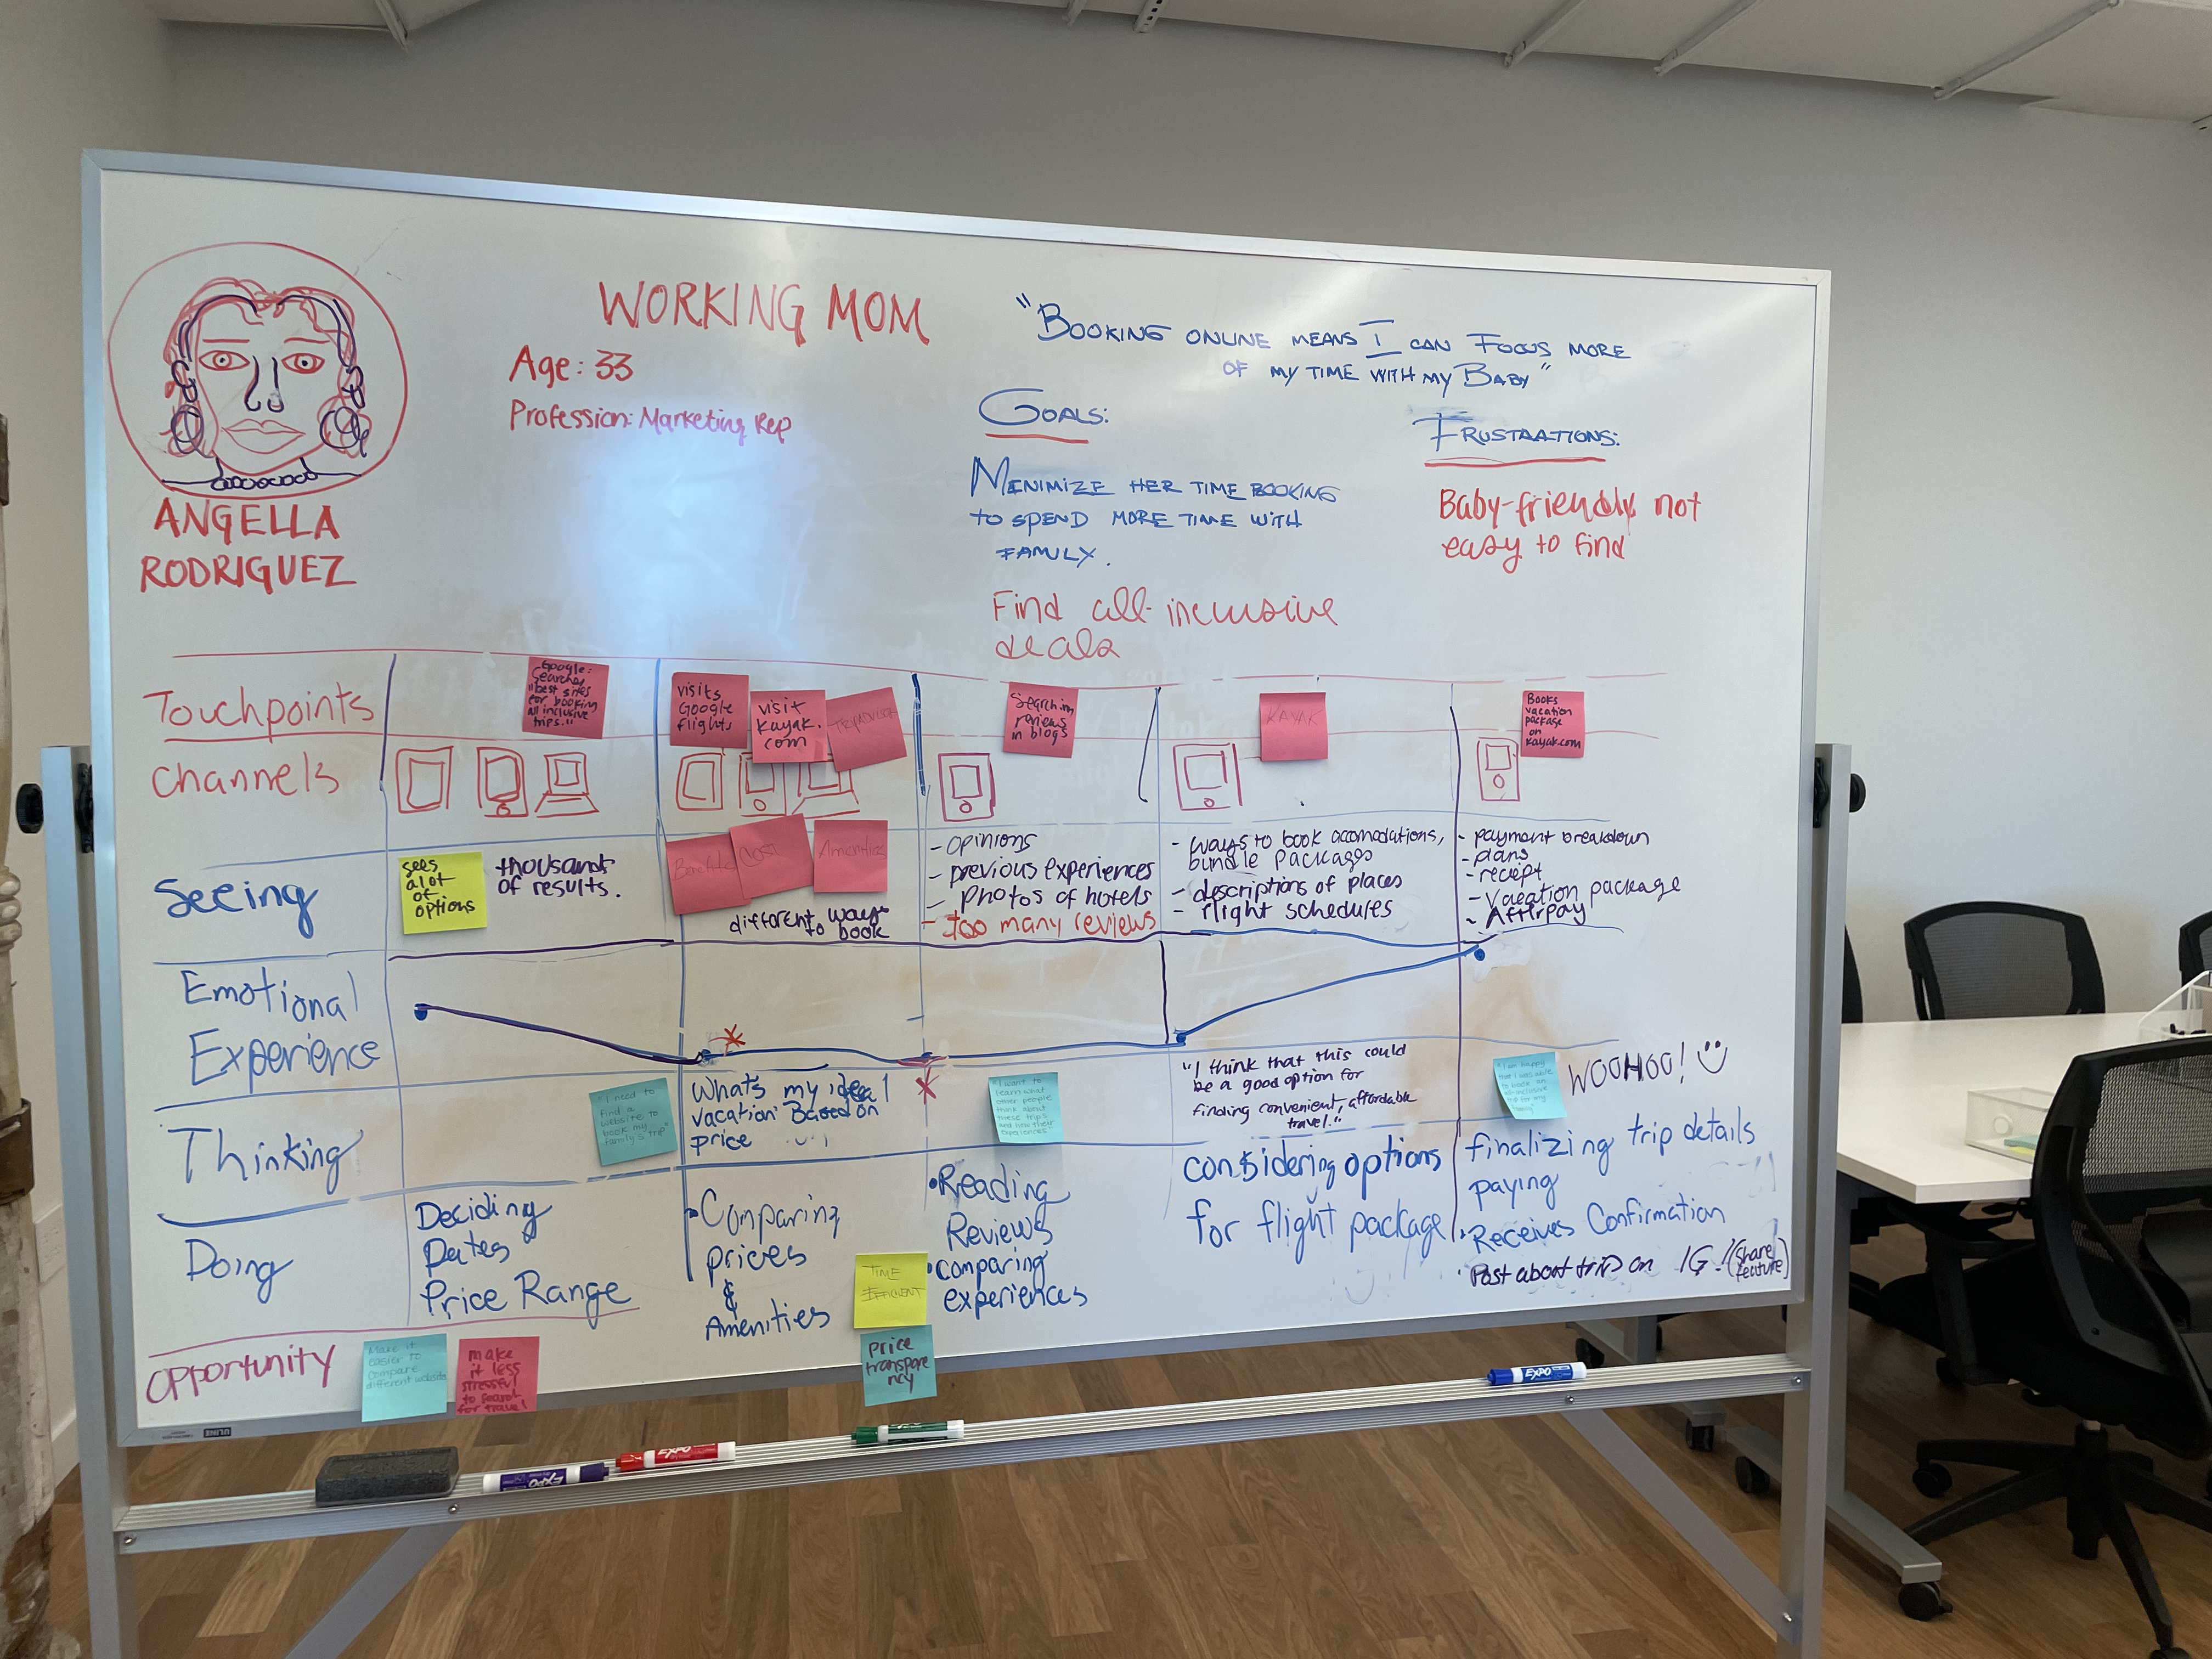 WORKING MOM
Age: 33
Profession: Marketing Rep
"BOOKING ONLINE MEANS I CAN FOCUS MORE
OF MY TIME WITH MY BABY"
GOALS:
MINIMIZE HER TIME BOOKING
TO SPEND MORE TIME WITH
FAMILY.
Find all-inclusive
deals
FRUSTAATIONS:
Baby-friendly not
easy to find
ANGELLA
RODRIGUEZ
Touchpoints
Google:
Searches
"best sites
for booking
all inclusive
trips."
visits
Google
flights
visit
kayak.
com
TRIPADVISOR
Searching
reviews
in blogs
KAYAK
Books
vacation
package
on
kayak.com
Channels
Seeing
sees
a lot
of
options
thousands
of results.
Benefits
COST
Amenities
different ways
to book
- opinions
- previous experiences
- Photos of hotels
- too many reviews
- ways to book accomodations,
bundle packages
- descriptions of places
- flight schedules
- payment breakdown
- plans
- reciept
- Vacation package
- Afterpay
Emotional
Experience
Thinking
"I need to
find a
website to
book my
family's trip"
Whats my ideal
vacation Based on
price
"I want to
learn what
other people
think about
these trips
and how their
experiences"
"I think that this could
be a good option for
finding convenient, affordable
travel."
"I am happy
that I was able
to book an
all-inclusive
trip for my
family"
WOOHOO!
Doing
Deciding
Dates
Price Range
• Comparing
prices
&
Amenities
TIME
EFFICIENT
• Reading
Reviews
• comparing
experiences
considering options
for flight package
finalizing trip details
paying
• Receives Confirmation
• Post about trip on IG! (share
feature)
opportunity
Make it
easier to
compare
different websites
make
it less
stressful
to search
for travel
price
transpare
ncy
ULINE
EXPO
EXPO
EXPO